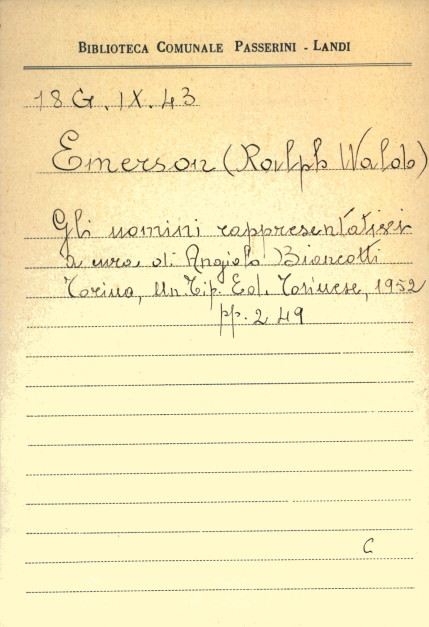 BIBLIOTECA COMUNALE PASSERINI - LANDI
18 G. IX. 43
Emerson (Ralph Waldo)
Gli uomini rappresentativi
a cura di Angiolo Biancotti
Torino, Un. Tip. Ed. Torinese, 1952
pp. 249
C